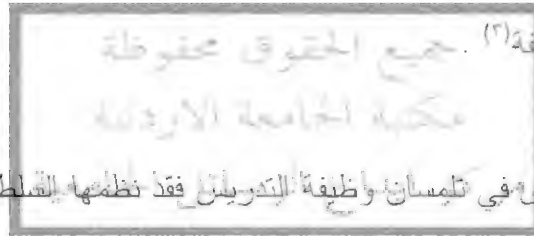 جميع الحقوق محفوظة
مكتبة الجامعة الاردنية
في تلمسان وظيفة التدريس فقد نظمتها